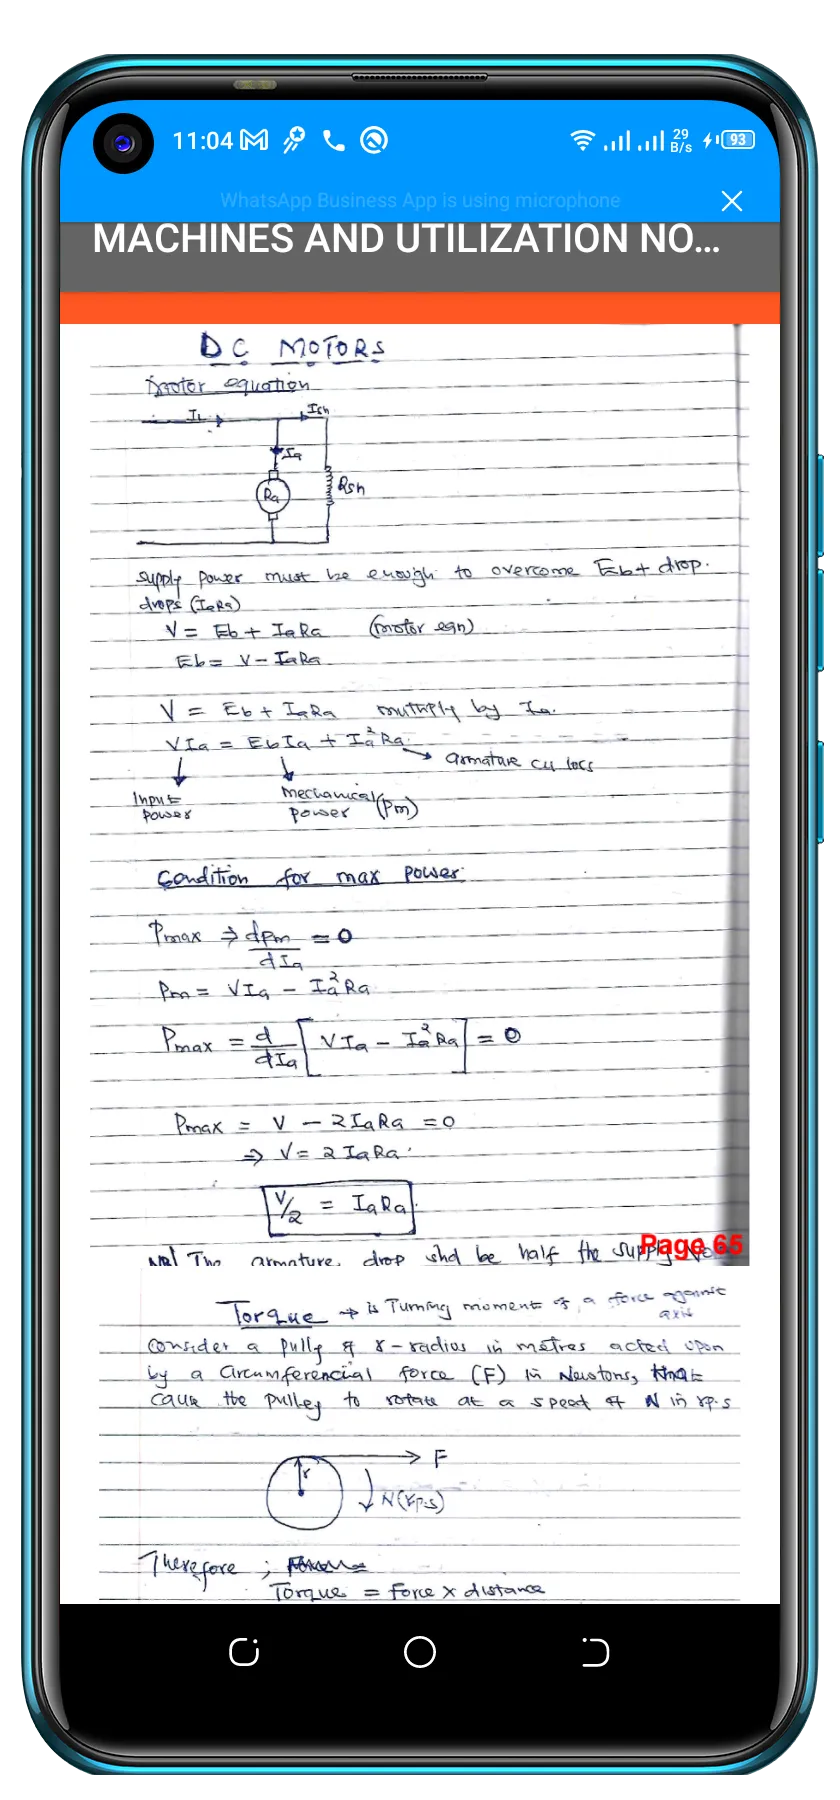 11:04
29
B/s
93
WhatsApp Business App is using microphone
MACHINES AND UTILIZATION NO...
DC MOTORS
motor equation
IL
Ish
Ia
Ra
Rsh
supply power must be enough to overcome Eb + drop.
drops (IaRa)
V = Eb + IaRa (motor eqn)
Eb = V - IaRa
V = Eb + IaRa multiply by Ia.
VIa = EbIa + Ia²Ra.
armature cu loss
Input power
mechanical power (Pm)
Condition for max power.
Pmax ⇒ dPm/dIa = 0
Pm = VIa - Ia²Ra
Pmax = d/dIa [VIa - Ia²Ra] = 0
Pmax = V - 2IaRa = 0
⇒ V = 2IaRa.
V/2 = IaRa.
The armature drop shd be half the supply
Page 65
Torque → is Turning moment of a force against axis
Consider a pully of r-radius in metres acted upon
by a circumferencial force (F) in Newtons, that
cause the pulley to rotate at a speed of N in r.p.s
F
r
N(r.p.s)
Therefore ;
Torque = force x distance